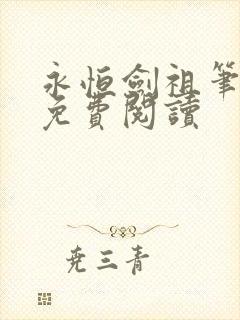 永恒劍祖筆
免費閱讀
尭三青